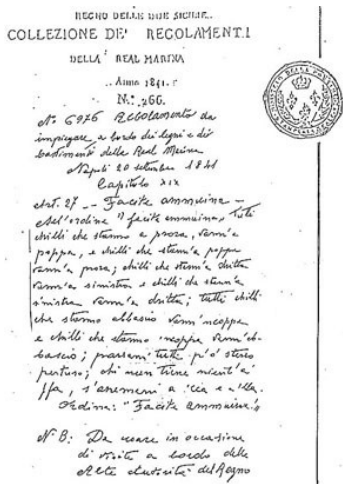 REGNO DELLE DUE SICILIE
COLLEZIONE DE' REGOLAMENTI
DELLA REAL MARINA
Anno 1841
N. 266.
N° 6976 Regolamento da
impiegare a bordo dei legni e dei
bastimenti della Real Marina
Napoli 20 settembre 1841
Capitolo XIX
Art. 27 — Facite ammuina —
All'ordine "facite ammuina, tutti
chilli che stanno a prora, vann'a
poppa, e chilli che stann'a poppa
vann'a prora; chilli che stann'a dritta
vann'a sinistra e chilli che stann'a
sinistra vann'a dritta; tutti chilli
che stanno abbascio vann'ncoppa
e chilli che stanno ncoppa vann'ab-
bascio; passann tutti p'o stesso
pertuso; chi nun tiene nient'a
ffa, s'aremeni a 'ccà e a 'llà.
Ordine: "Facite ammuina".
N.B: Da usare in occasione
di visite a bordo delle
Alte Autorità del Regno